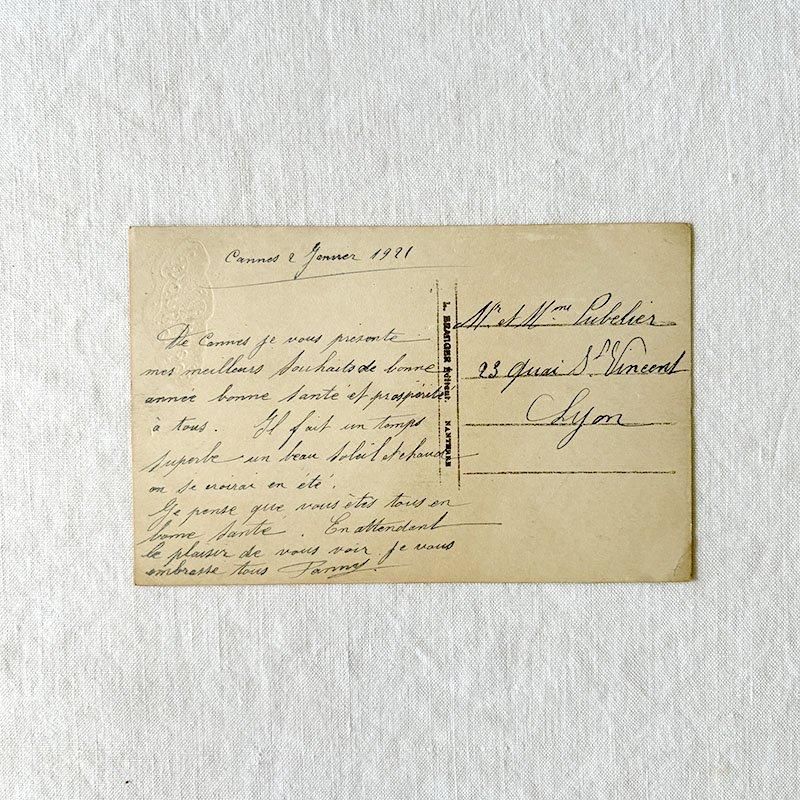 Cannes 2 Janvier 1921
De Cannes je vous présente
mes meilleurs souhaits de bonne
année bonne santé et prospérité
à tous. Il fait un temps
superbe un beau soleil et chaud
on se croirai en été.
Je pense que vous êtes tous en
bonne santé. En attendant
le plaisir de vous voir je vous
embrasse tous Fanny.
L. BERANGER Éditeur. NANTERRE
Mr et Mme Pubelier
23 Quai St Vincent
Lyon